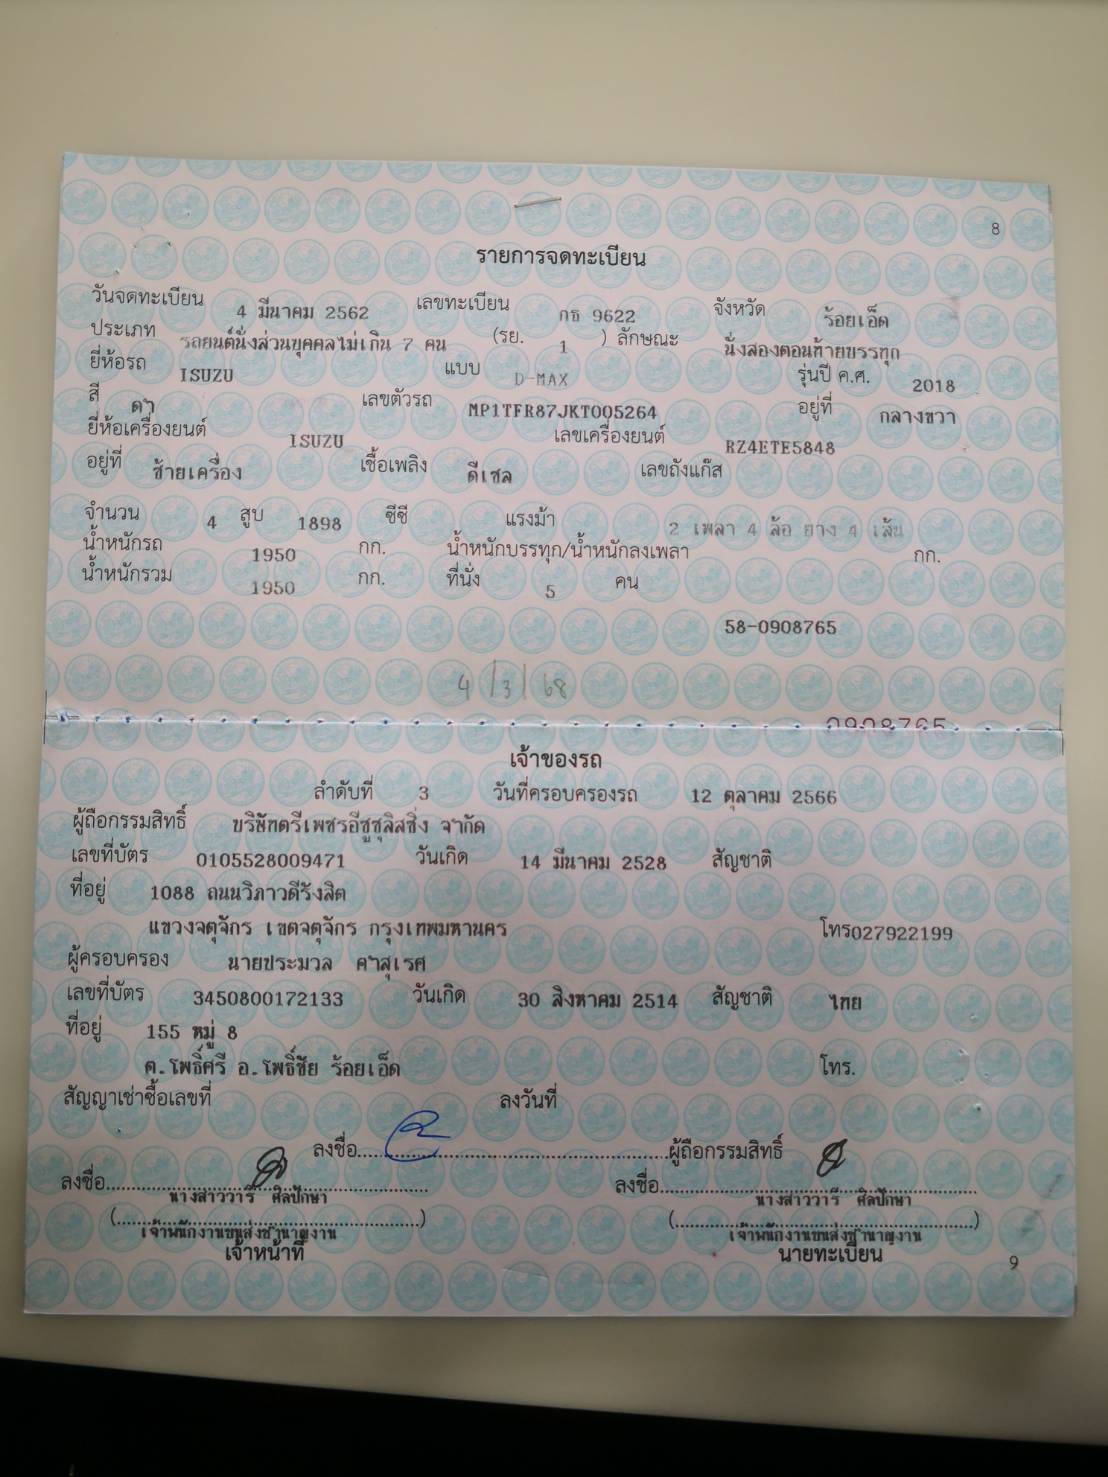 8
รายการจดทะเบียน
วันจดทะเบียน 4 มีนาคม 2562 เลขทะเบียน กธ 9622 จังหวัด ร้อยเอ็ด
ประเภท รถยนต์นั่งส่วนบุคคลไม่เกิน 7 คน (รย. 1 ) ลักษณะ นั่งสองตอนท้ายบรรทุก
ยี่ห้อรถ ISUZU แบบ D-MAX รุ่นปี ค.ศ. 2018
สี ดำ เลขตัวรถ MP1TFR87JKT005264 อยู่ที่ กลางขวา
ยี่ห้อเครื่องยนต์ ISUZU เลขเครื่องยนต์ RZ4ETE5848
อยู่ที่ ซ้ายเครื่อง เชื้อเพลิง ดีเซล เลขถังแก๊ส
จำนวน 4 สูบ 1898 ซีซี แรงม้า 2 เพลา 4 ล้อ ยาง 4 เส้น
น้ำหนักรถ 1950 กก. น้ำหนักบรรทุก/น้ำหนักลงเพลา กก.
น้ำหนักรวม 1950 กก. ที่นั่ง 5 คน
58-0908765
4/3/68
0908765
เจ้าของรถ
ลำดับที่ 3 วันที่ครอบครองรถ 12 ตุลาคม 2566
ผู้ถือกรรมสิทธิ์ บริษัทตรีเพชรอีซูซุลิสซิ่ง จำกัด
เลขที่บัตร 0105528009471 วันเกิด 14 มีนาคม 2528 สัญชาติ
ที่อยู่ 1088 ถนนวิภาวดีรังสิต
แขวงจตุจักร เขตจตุจักร กรุงเทพมหานคร โทร027922199
ผู้ครอบครอง นายประมวล คำสุเรศ
เลขที่บัตร 3450800172133 วันเกิด 30 สิงหาคม 2514 สัญชาติ ไทย
ที่อยู่ 155 หมู่ 8
ต.โพธิ์ศรี อ.โพธิ์ชัย ร้อยเอ็ด โทร.
สัญญาเช่าซื้อเลขที่ ลงวันที่
ลงชื่อ..........ผู้ถือกรรมสิทธิ์
ลงชื่อ.......... ลงชื่อ..........
นางสาววารี ศิลปักษา นางสาววารี ศิลปักษา
(..........) (..........)
เจ้าพนักงานขนส่งชำนาญงาน เจ้าพนักงานขนส่งชำนาญงาน
เจ้าหน้าที่ นายทะเบียน
9